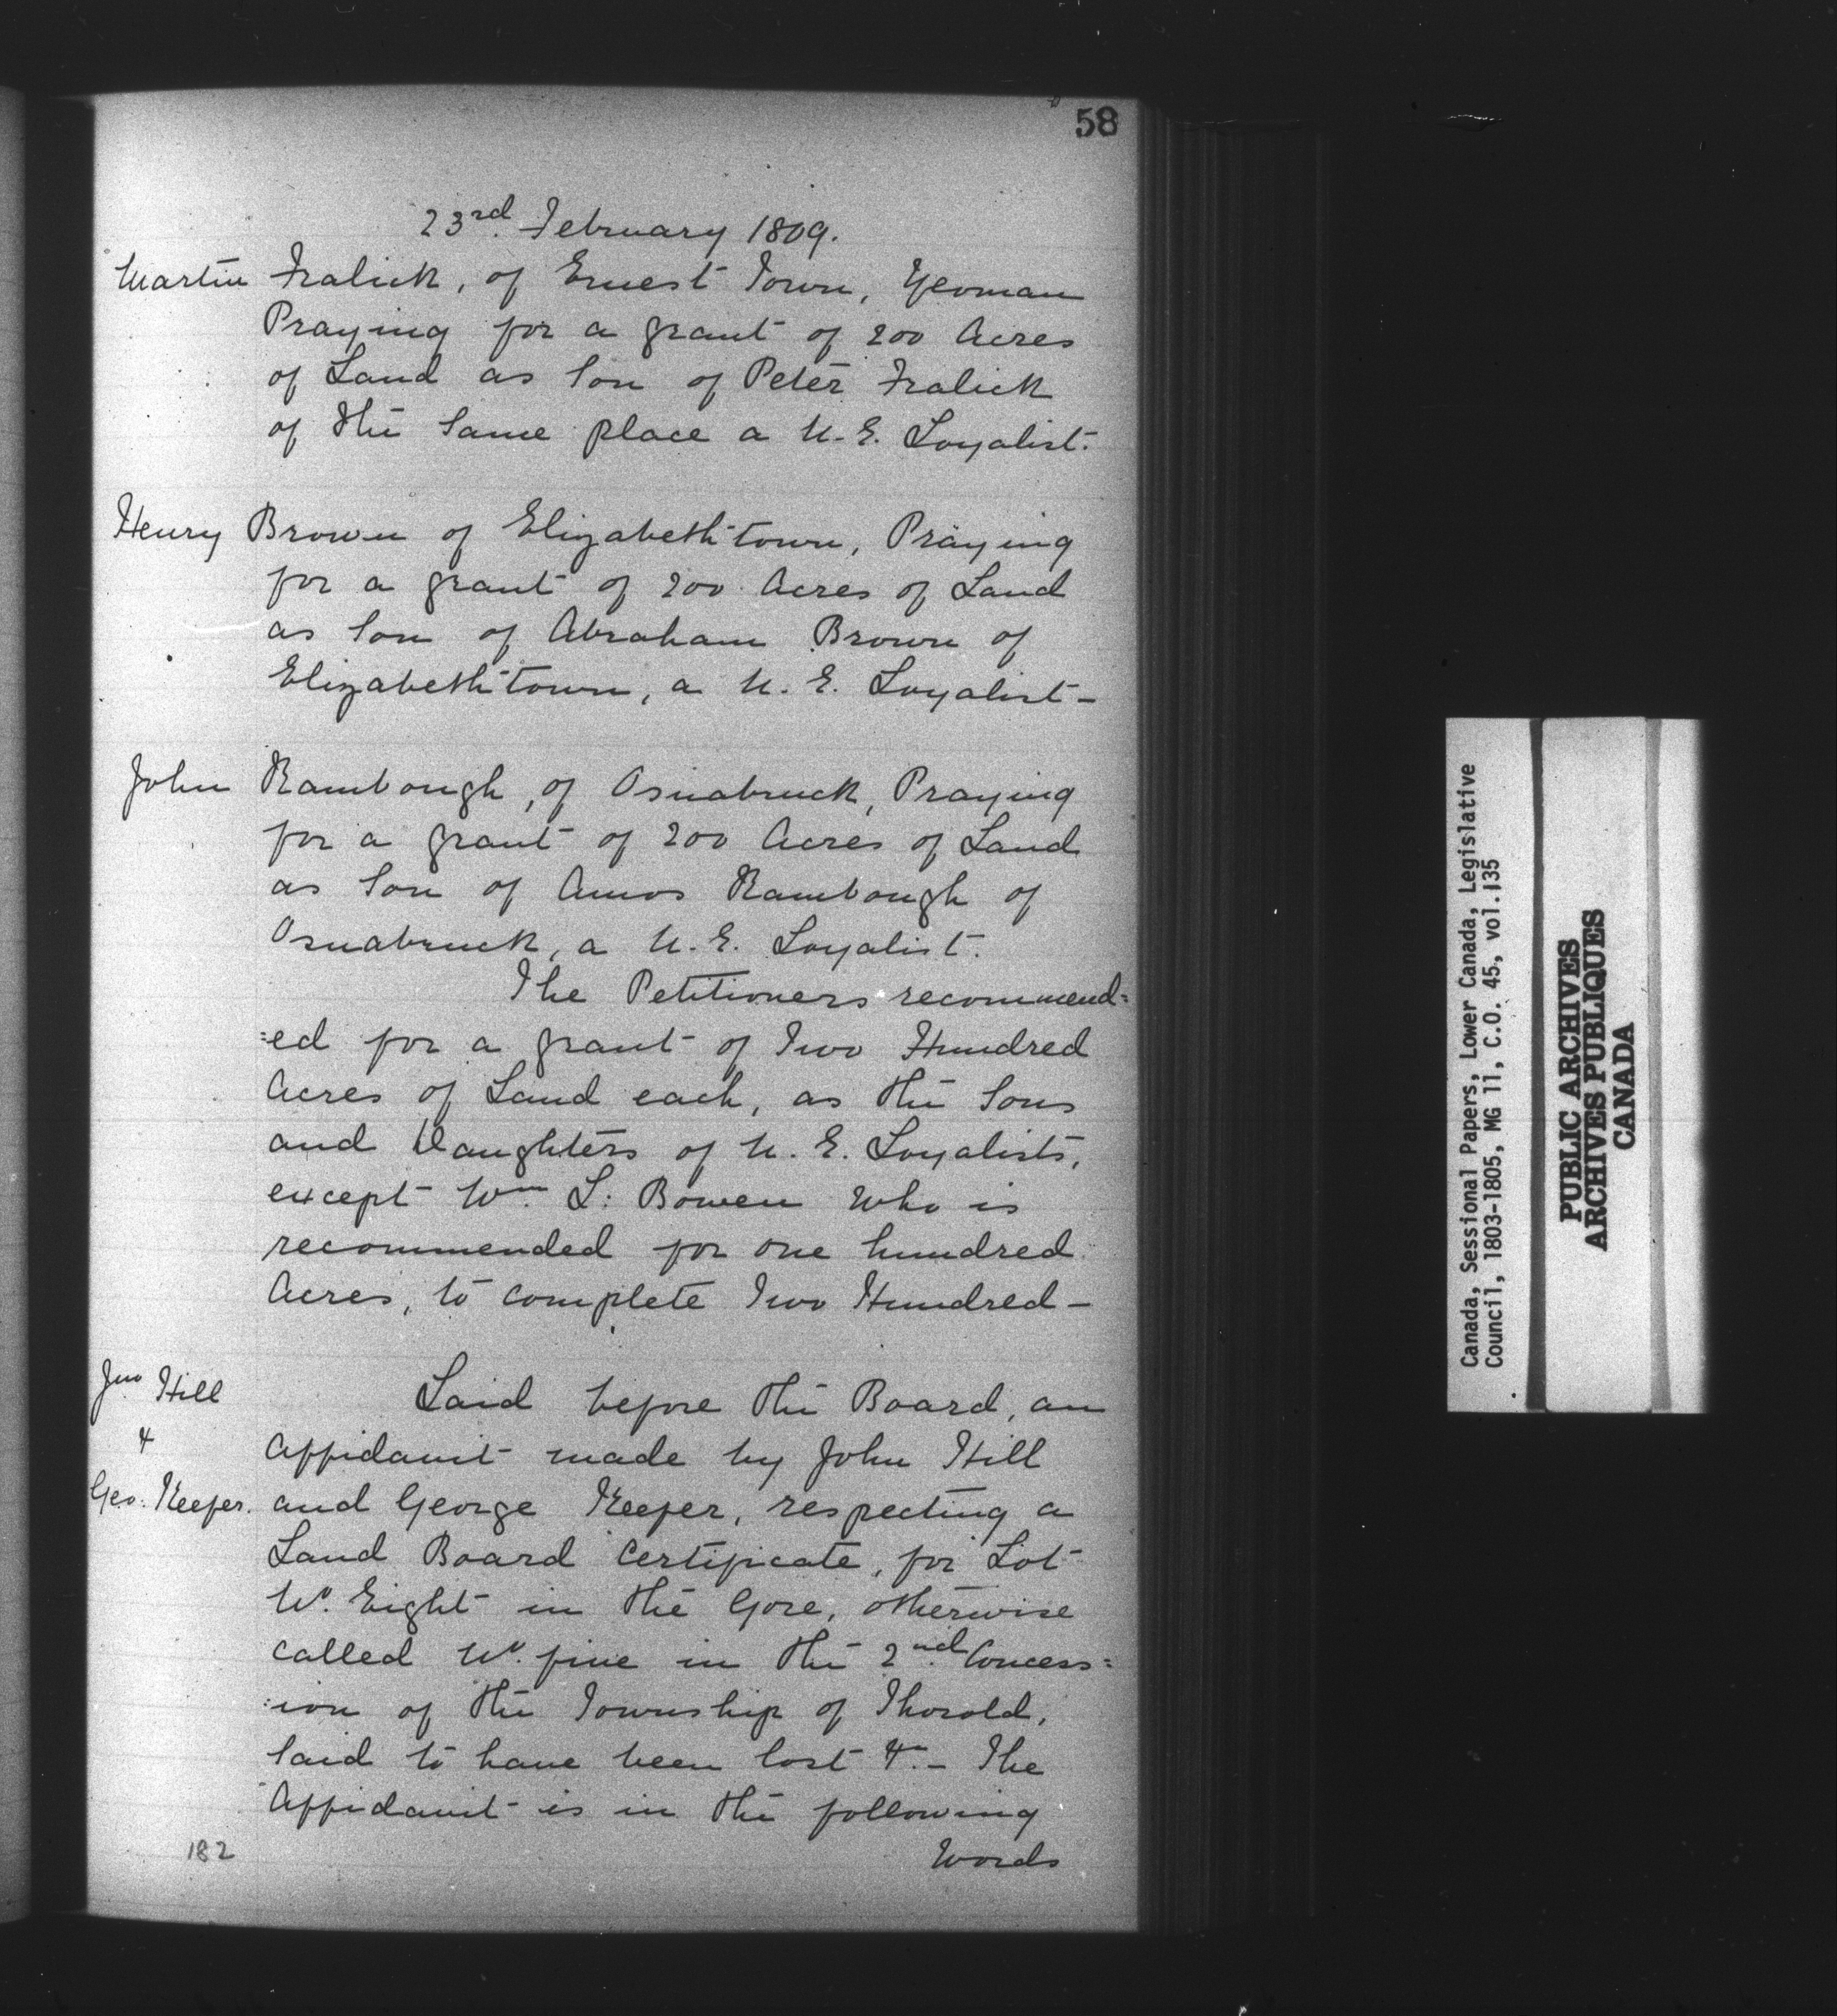 58
23rd. February 1809.
Martin Fralick, of Ernest Town, Yeoman
Praying for a grant of 200 Acres
of Land as Son of Peter Fralick
of the Same place a U. E. Loyalist.
Henry Brown of Elizabethtown, Praying
for a grant of 200 Acres of Land
as Son of Abraham Brown of
Elizabethtown, a U. E. Loyalist -
John Rambough, of Osnabruck, Praying
for a grant of 200 Acres of Land
as Son of Amos Rambough of
Osnabruck, a U. E. Loyalist.
The Petitioners recommend=
=ed for a grant of Two Hundred
Acres of Land each, as the Sons
and Daughters of U. E. Loyalists,
except Wm. L: Bowen Who is
recommended for one hundred
Acres, to complete Two Hundred -
Jno Hill
&
Geo: Keefer.
Laid before the Board, an
Affidavit made by John Hill
and George Keefer, respecting a
Land Board Certificate, for Lot
No. Eight in the Gore, otherwise
called No. five in the 2nd. Concess=
=ion of the Township of Thorold,
Said to have been lost &c. - The
Affidavit is in the following
Words
182
Canada, Sessional Papers, Lower Canada, Legislative
Council, 1803-1805, MG 11, C.O. 45, vol.135
PUBLIC ARCHIVES
ARCHIVES PUBLIQUES
CANADA